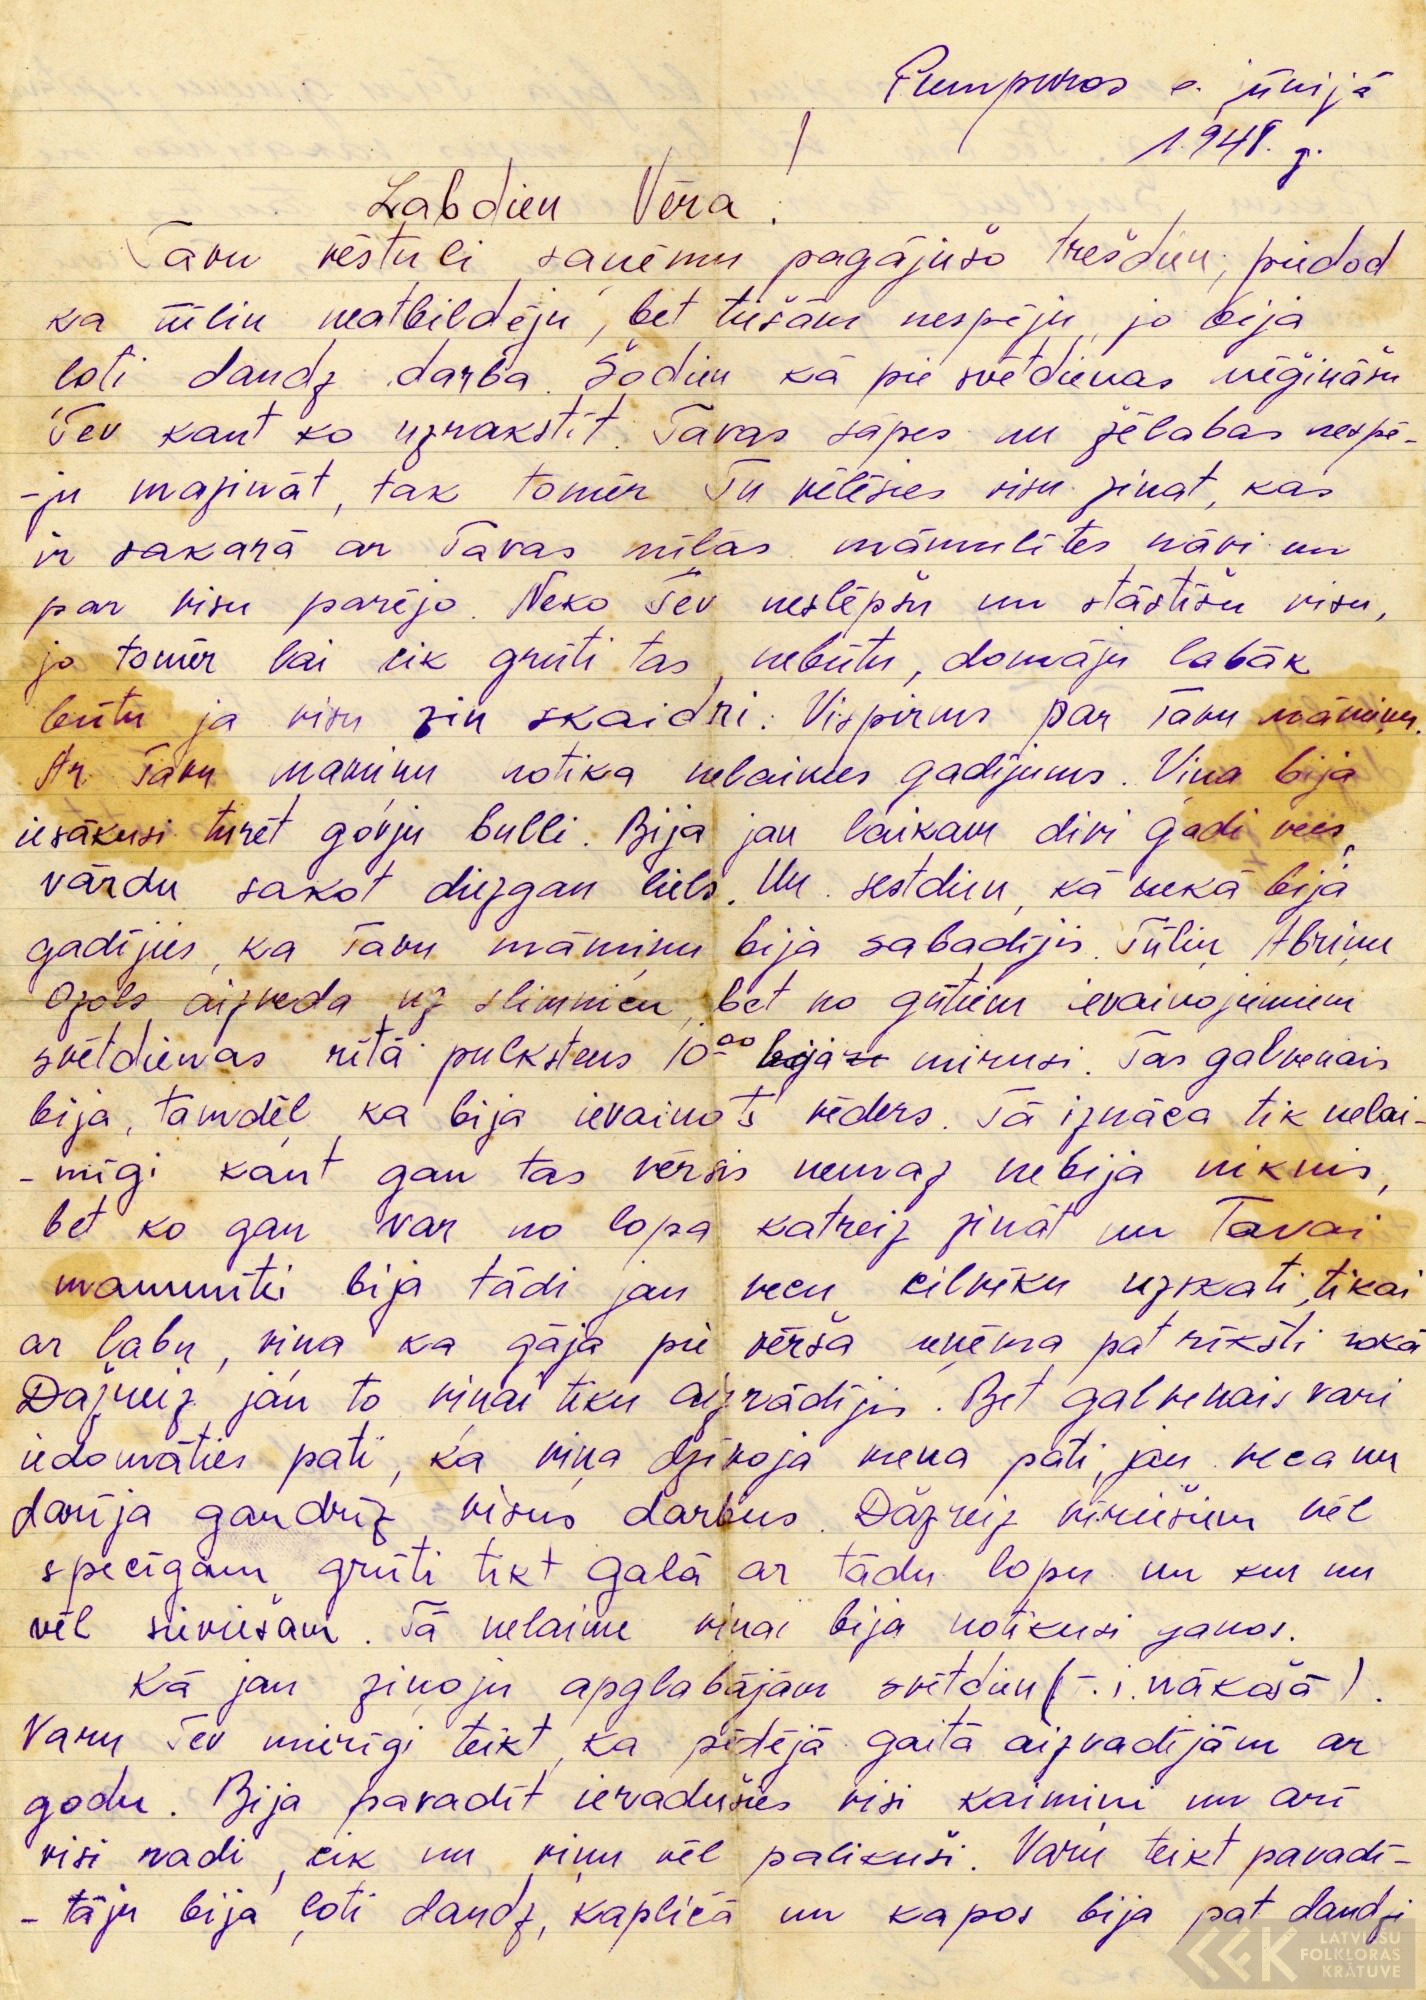 Pumpuros 6. jūnijā
1948. g.
Labdien Vēra!
Tavu vēstuli saņēmu pagājušo trešdien, piedod
ka tūliņ neatbildēju, bet tiešām nespēju, jo bija
ļoti daudz darba. Šodien kā pie svētdienas mēģināšu
Tev kaut ko uzrakstīt. Tavas sāpes un žēlabas nespē-
-ju mazināt, tak tomēr Tu vēlēsies visu zinat, kas
ir sakarā ar Tavas mīļās māmulītes nāvi un
par visu parējo. Neko Tev neslēpšu un stāstīšu visu,
jo tomēr lai cik grūti tas nebūtu, domāju labāk
būtu ja visu zin skaidri. Vispirms par Tavu māmiņu.
Ar Tavu mamiņu notika nelaimes gadījums. Viņa bija
iesākusi turēt govju bulli. Bija jau laikam divi gadi vecs,
vārdu sakot diezgan liels. Un sestdien, kā nekā bija
gadījies, ka Tavu māmiņu bija sabadījis. Tūliņ Abriņu
Ozols aizveda uz slimnīcu, bet no gūtiem ievainojumiem
svētdienas rītā pulkstens 10⁰⁰ bija mirusi. Tas galvenais
bija, tamdēļ ka bija ievainots vēders. Tā iznāca tik nelai-
-mīgi kaut gan tas vērsis nemaz nebija niknis,
bet ko gan var no lopa katreiz zināt un Tavai
mammītei bija tādi jau vecu cilvēku uzskati, tikai
ar labu, viņa ka gāja pie vērša neņēma pat rīksti rokā
Dažreiz jau to viņai tiku aizrādījis. Bet galvenais vari
iedomāties pati, ka viņa dzīvoja viena pati, jau veca un
darīja gandrīz visus darbus. Dažreiz vīriešiem vēl
spēcīgam grūti tikt galā ar tādu lopu un kur nu
vēl sieviešam. Tā nelaime viņai bija notikusi ganos.
Kā jau ziņoju apglabājām svētdien (t.i. nākošā).
Varu Tev mierīgi teikt, ka pēdējā gaitā aizvadījām ar
godu. Bija pavadīt ieradušies visi kaimiņi un arī
visi radi, cik nu viņu vēl palikuši. Varu teikt pavadī-
-tāju bija ļoti daudz, kapličā un kapos bija pat daudzi
LATVIEŠU
FOLKLORAS
KRĀTUVE